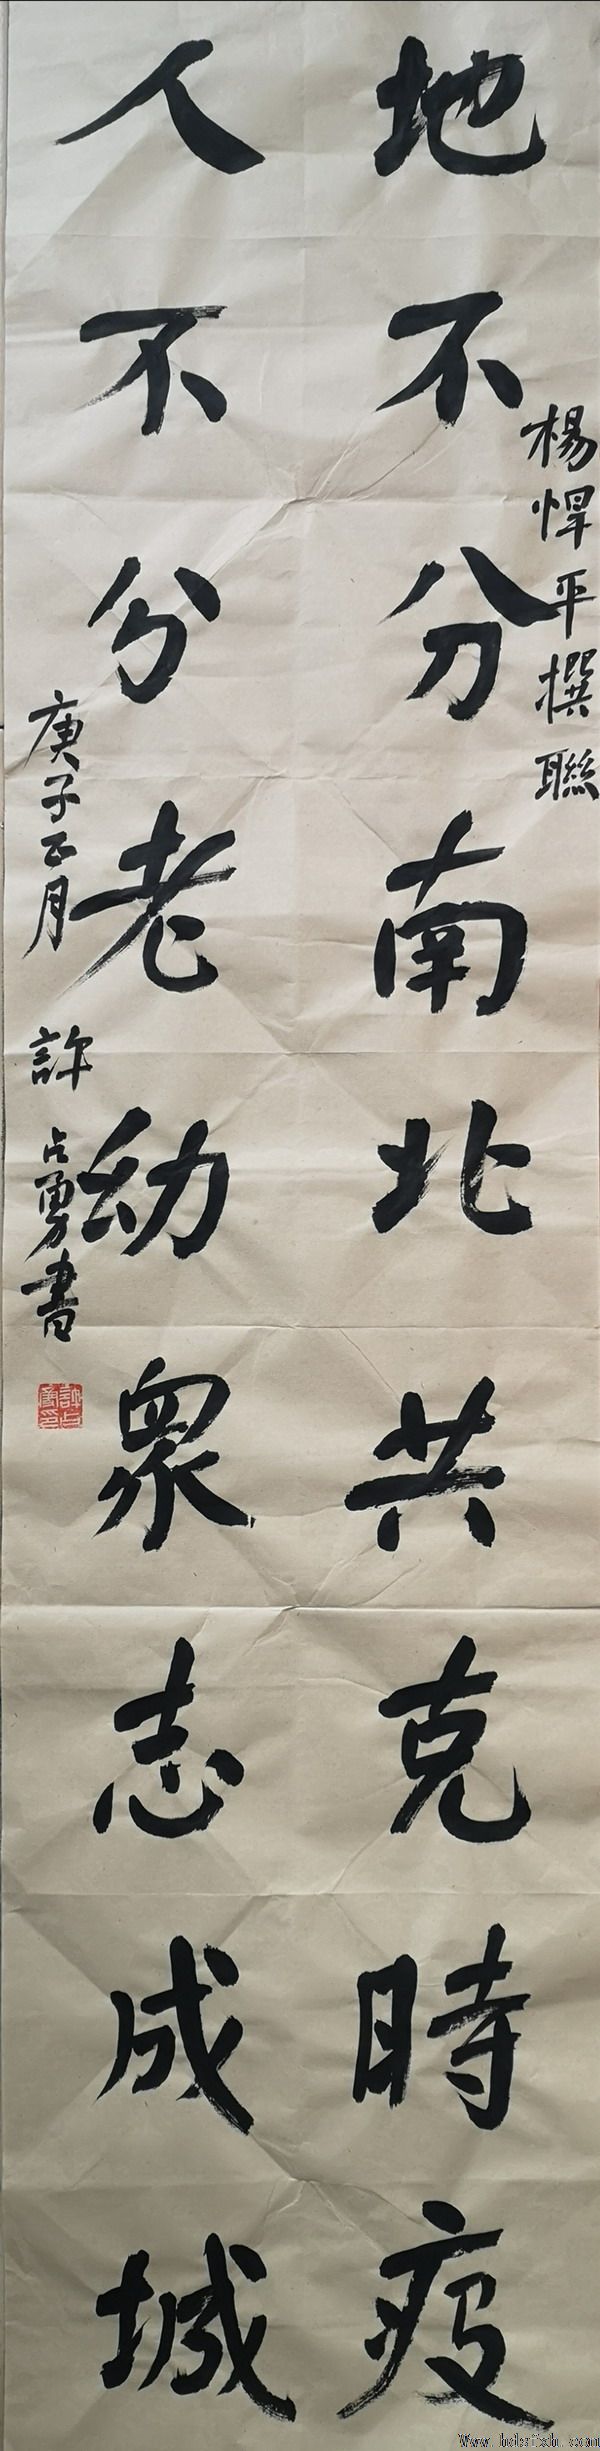 楊悍平撰聯
地不分南北共克時疫
人不分老幼眾志成城
庚子正月 許占勇書
許占勇印
Www.hdsfxh.com